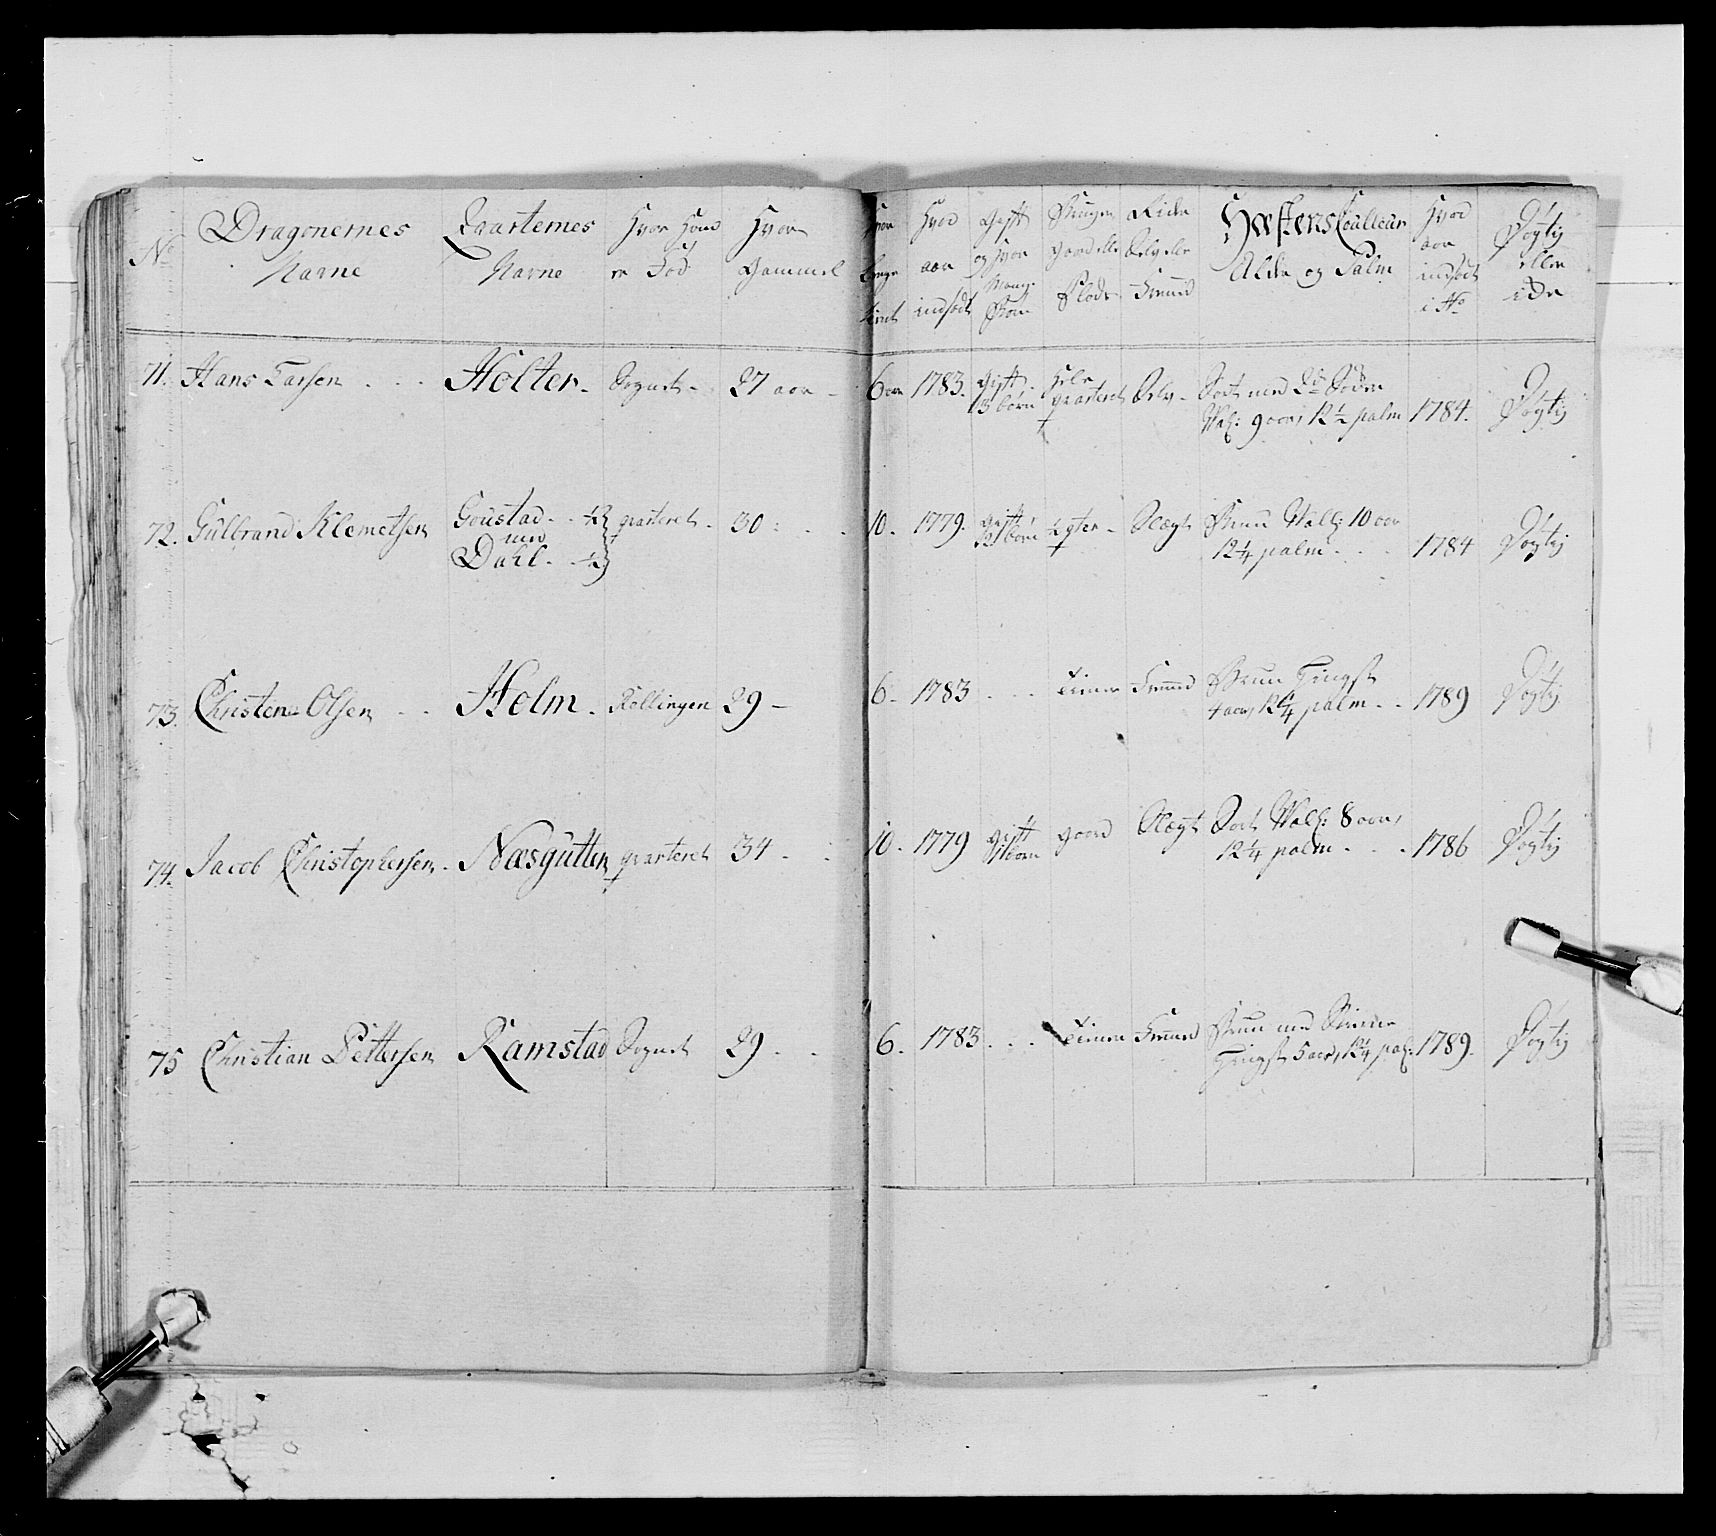 No | Dragonernes Narne | Qvarternes Narne | Hvor Hand er Fød | Hvor Gammel | Hvor lenge tient | Hvad aar indsadt | Gift og Hvor Mange Børn | Bruger Gaard eller Plads | Ride Selv eller Fremmed | Hæstens Couleur Alder og Palm | Hvad aar indsadt i No | Døgtig eller iche
71. Hans Larsen . . . | Holter. | Sognet - | 27 aar - | 6 aar | 1783. | Gift 3 børn | Hele Qvarteret | Selv - | Sort med 2de Sider Val: 9 aar, 12½ palm | 1784. | Døgtig
72. Gulbrand Klemetsen | Goustad . . ½ med Dahl . ½ | qvarteret . | 30 : . . | 10 . | 1779. | Gift børn | | Slægt | Brun Vall: 10 aar 12¼ palm . . . | 1784 | Døgtig
73. Christen Olsen . . | Holm . | Kellingen | 29 - | 6 . | 1783 . . . | | Tiener | Fremed | Bruun Hingst 4 aar, 12¼ palm . . | 1789 | Døgtig
74. Jacob Christophersen . | Næsgutten | qvarteret | 34 . . | 10 . | 1779 | Gift børn | gaard | Slægt | Sort Vall: 8 aar, 12¼ palm . . . | 1786 | Døgtig
75 Christian Pettersen | Ramstad | Sognet | 29 . . | 6 . | 1783 . . . | | Tiener | Fremed | Bruun med Hingst 5 aar, 12¼ pal: | 1789. | Døgtig